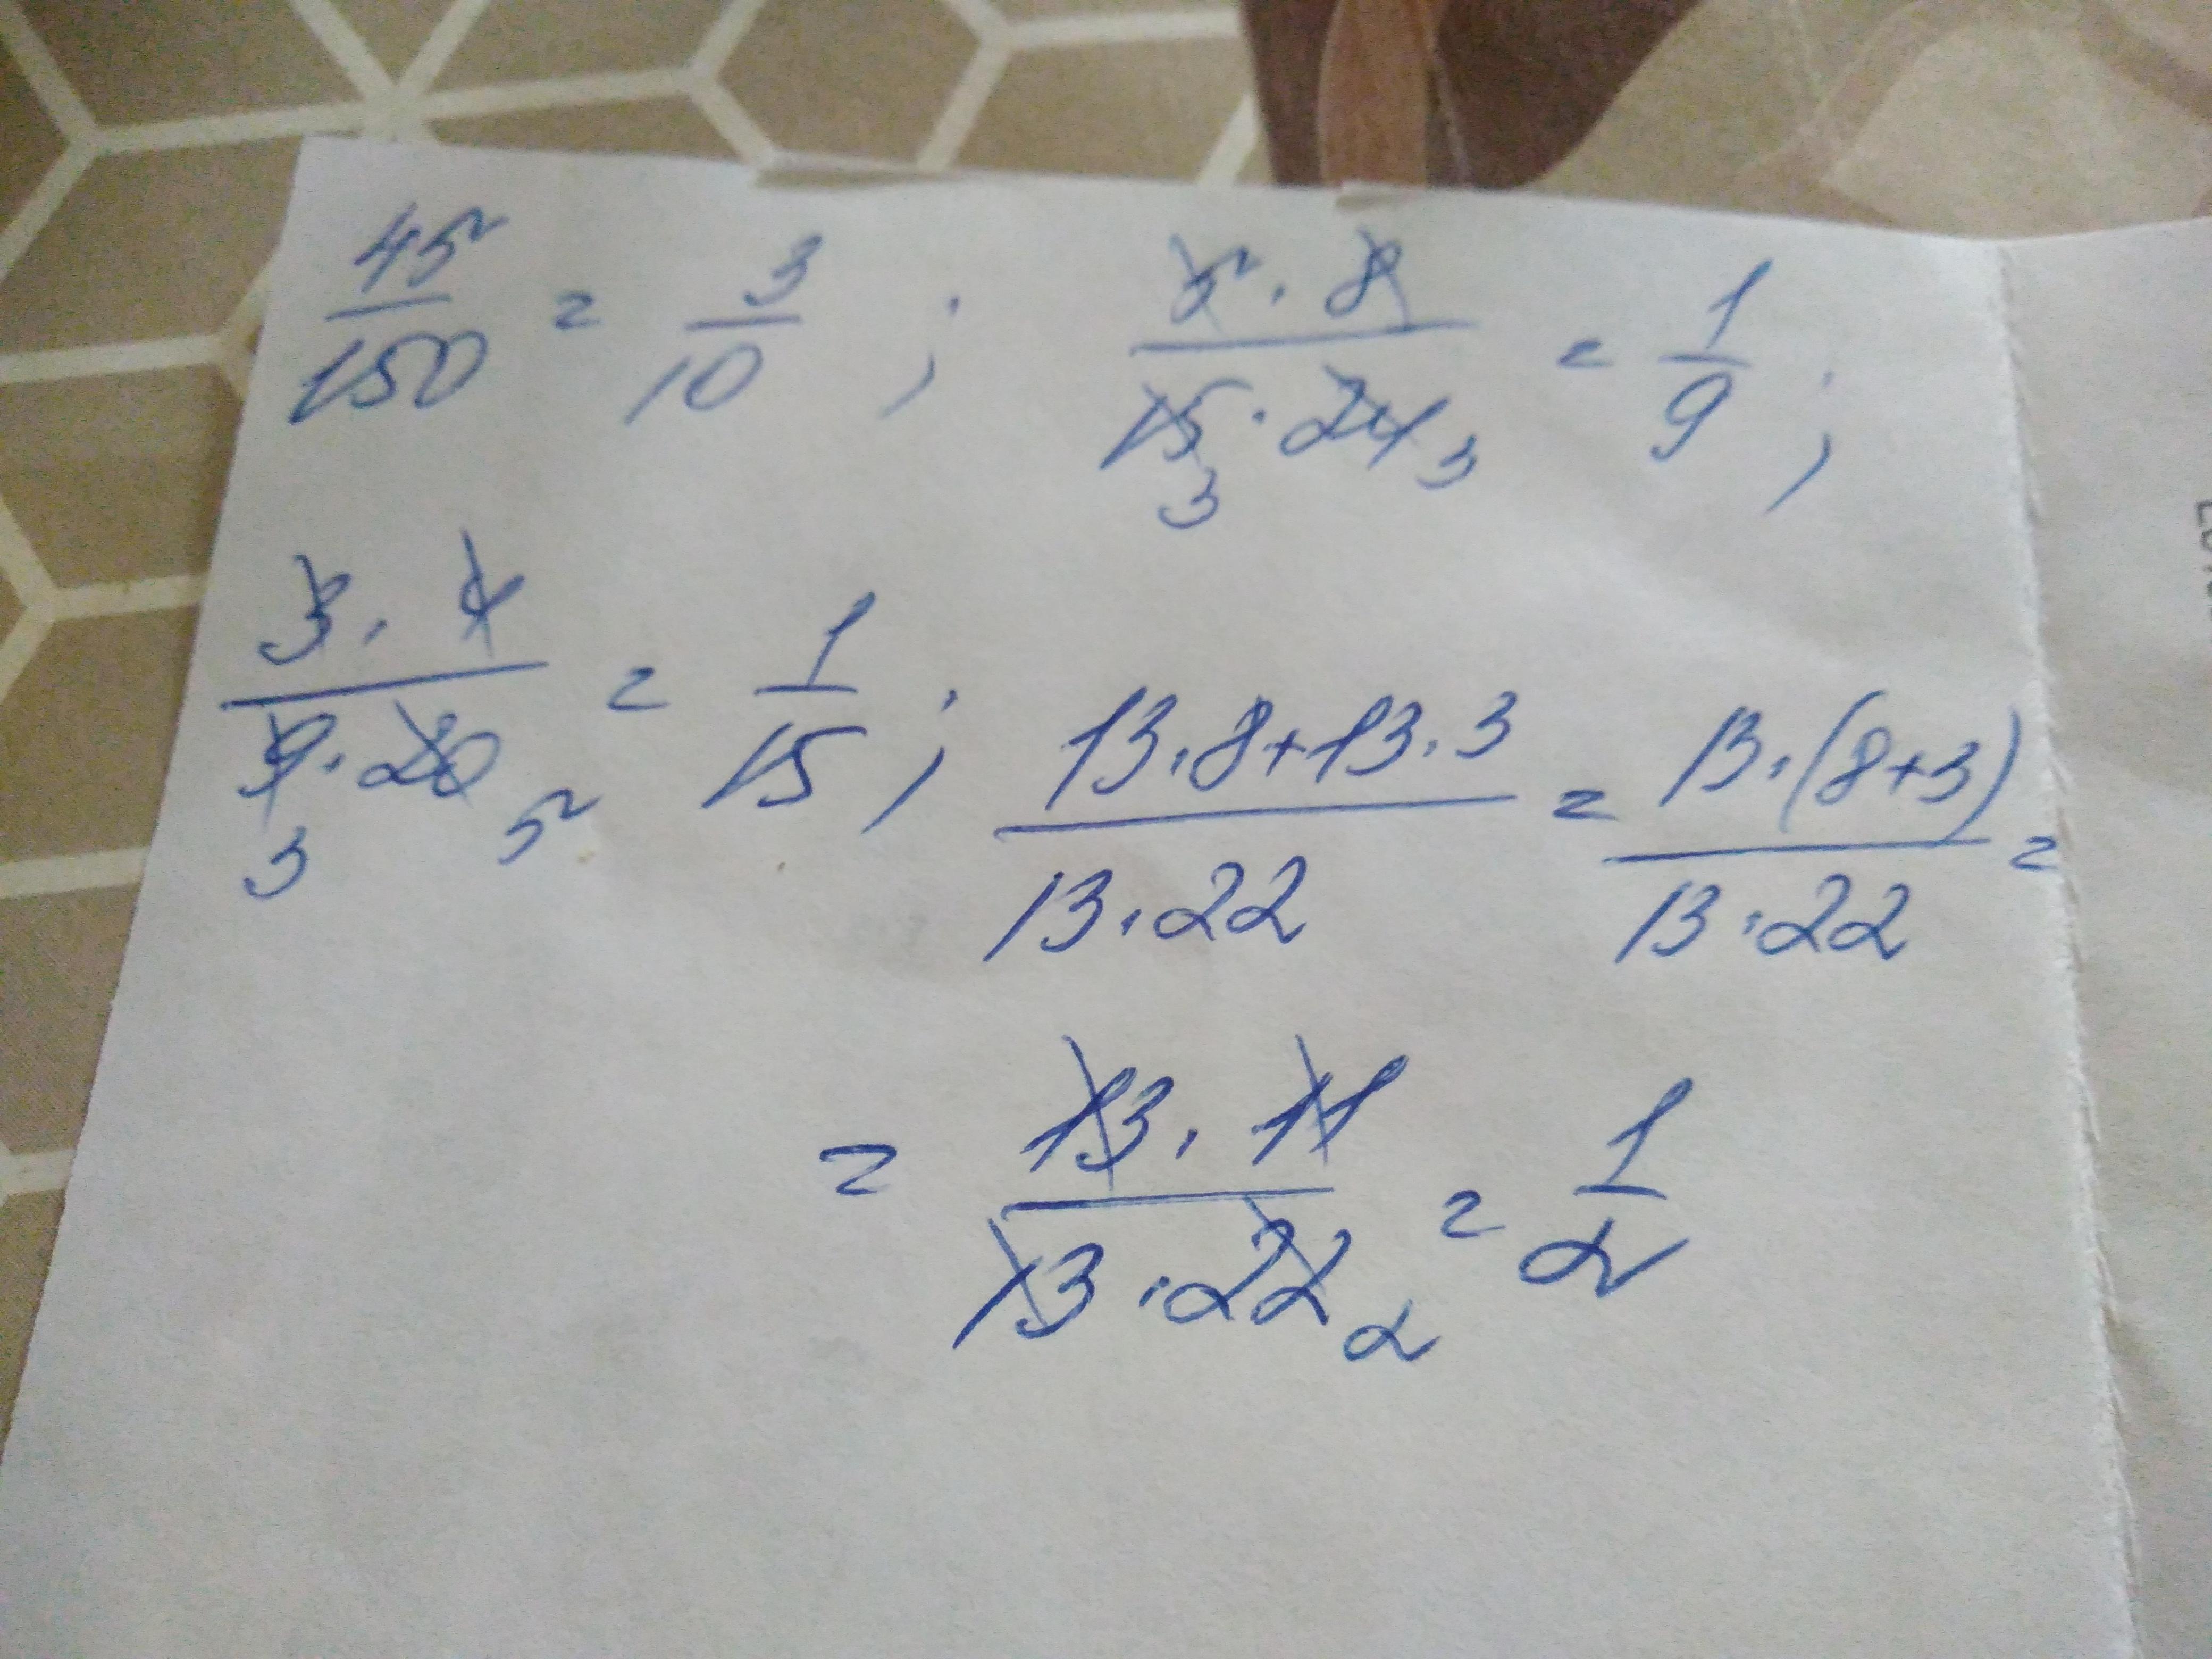 45/150 = 3/10 ; 5·8/15·24 = 1/9 ;
3 3
3·4/9·20 = 1/15 ; 13·8+13·3/13·22 = 13·(8+3)/13·22 =
3 5
= 13·11/13·22 = 1/2
2